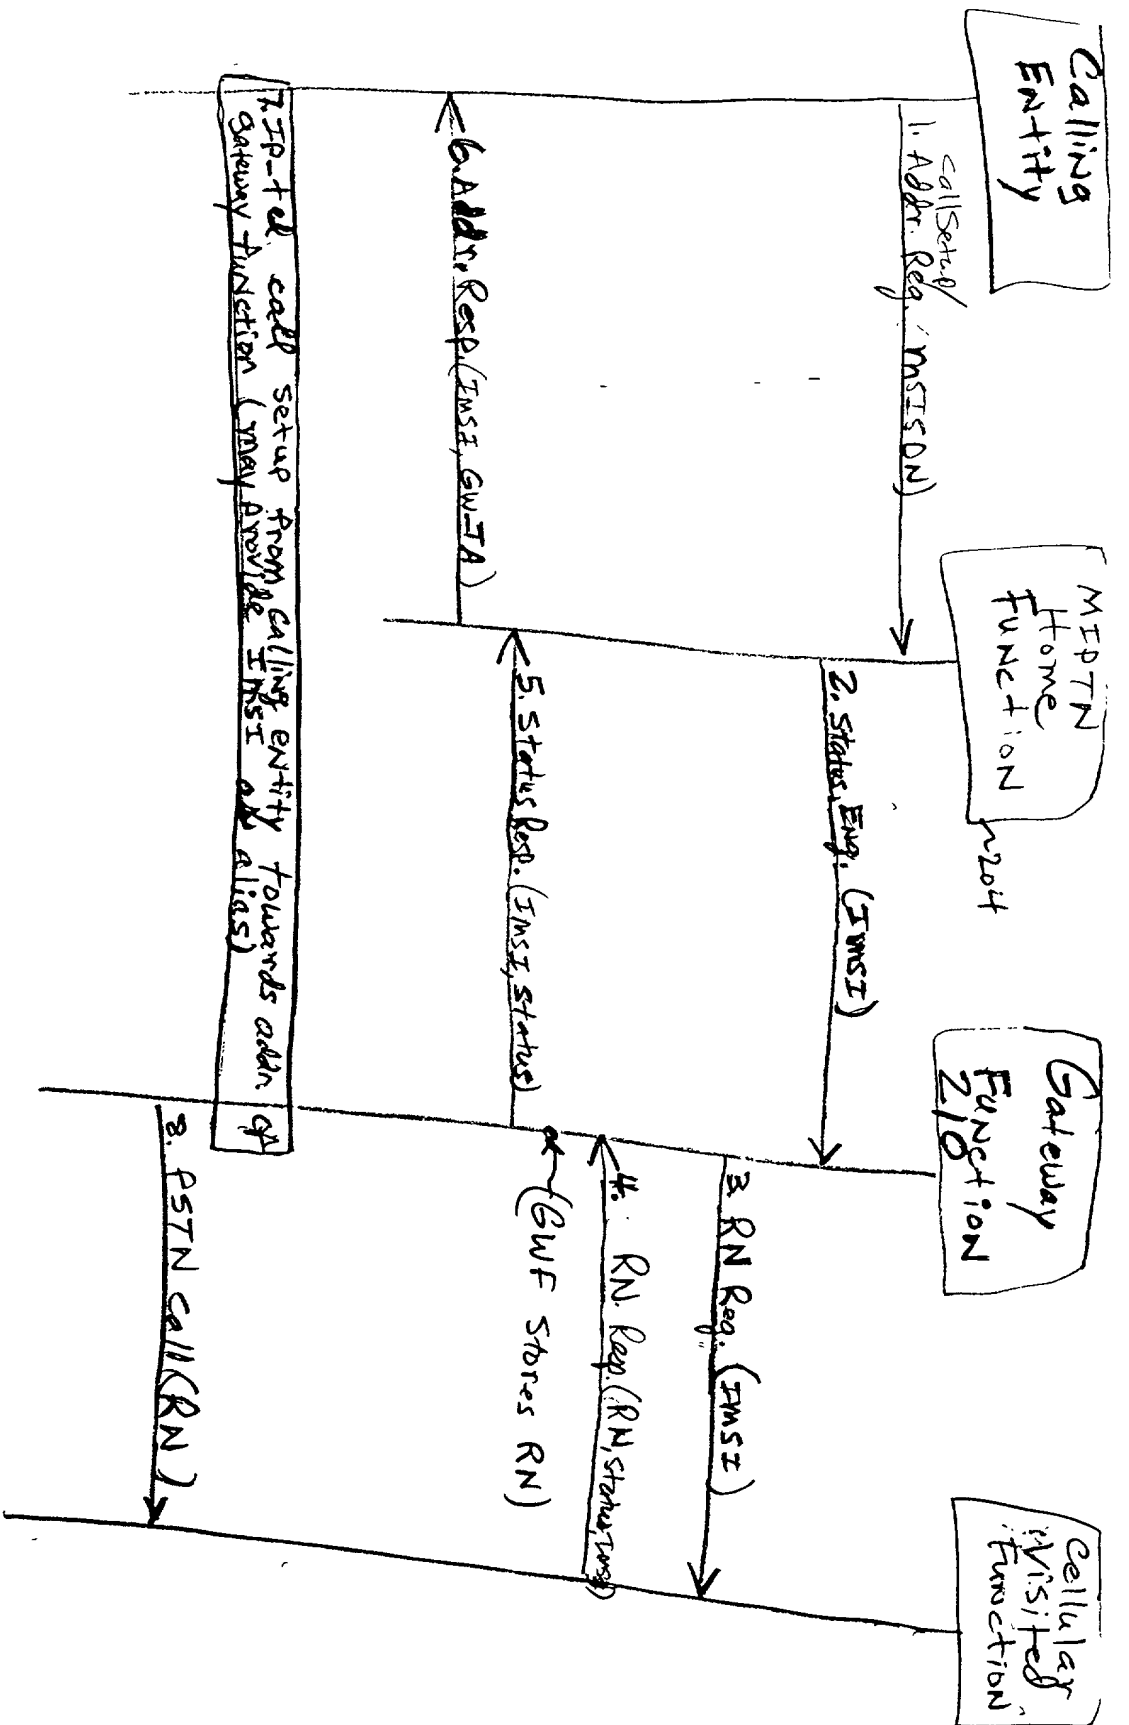 Calling
Entity
MIPTN
Home
Function
~204
Gateway
Function
210
Cellular
Visited
Function
Call Setup/
1. Addr. Req. (MSISDN)
2. Status Enq. (IMSI)
3. RN Req. (IMSI)
4. RN. Resp. (RN, status, IMSI)
(GWF Stores RN)
5. Status Resp. (IMSI, status)
6. Addr. Resp. (IMSI, GW_TA)
7. IP-tel. call setup from calling entity towards addr. of
gateway function (may provide IMSI as alias)
8. PSTN Call (RN)